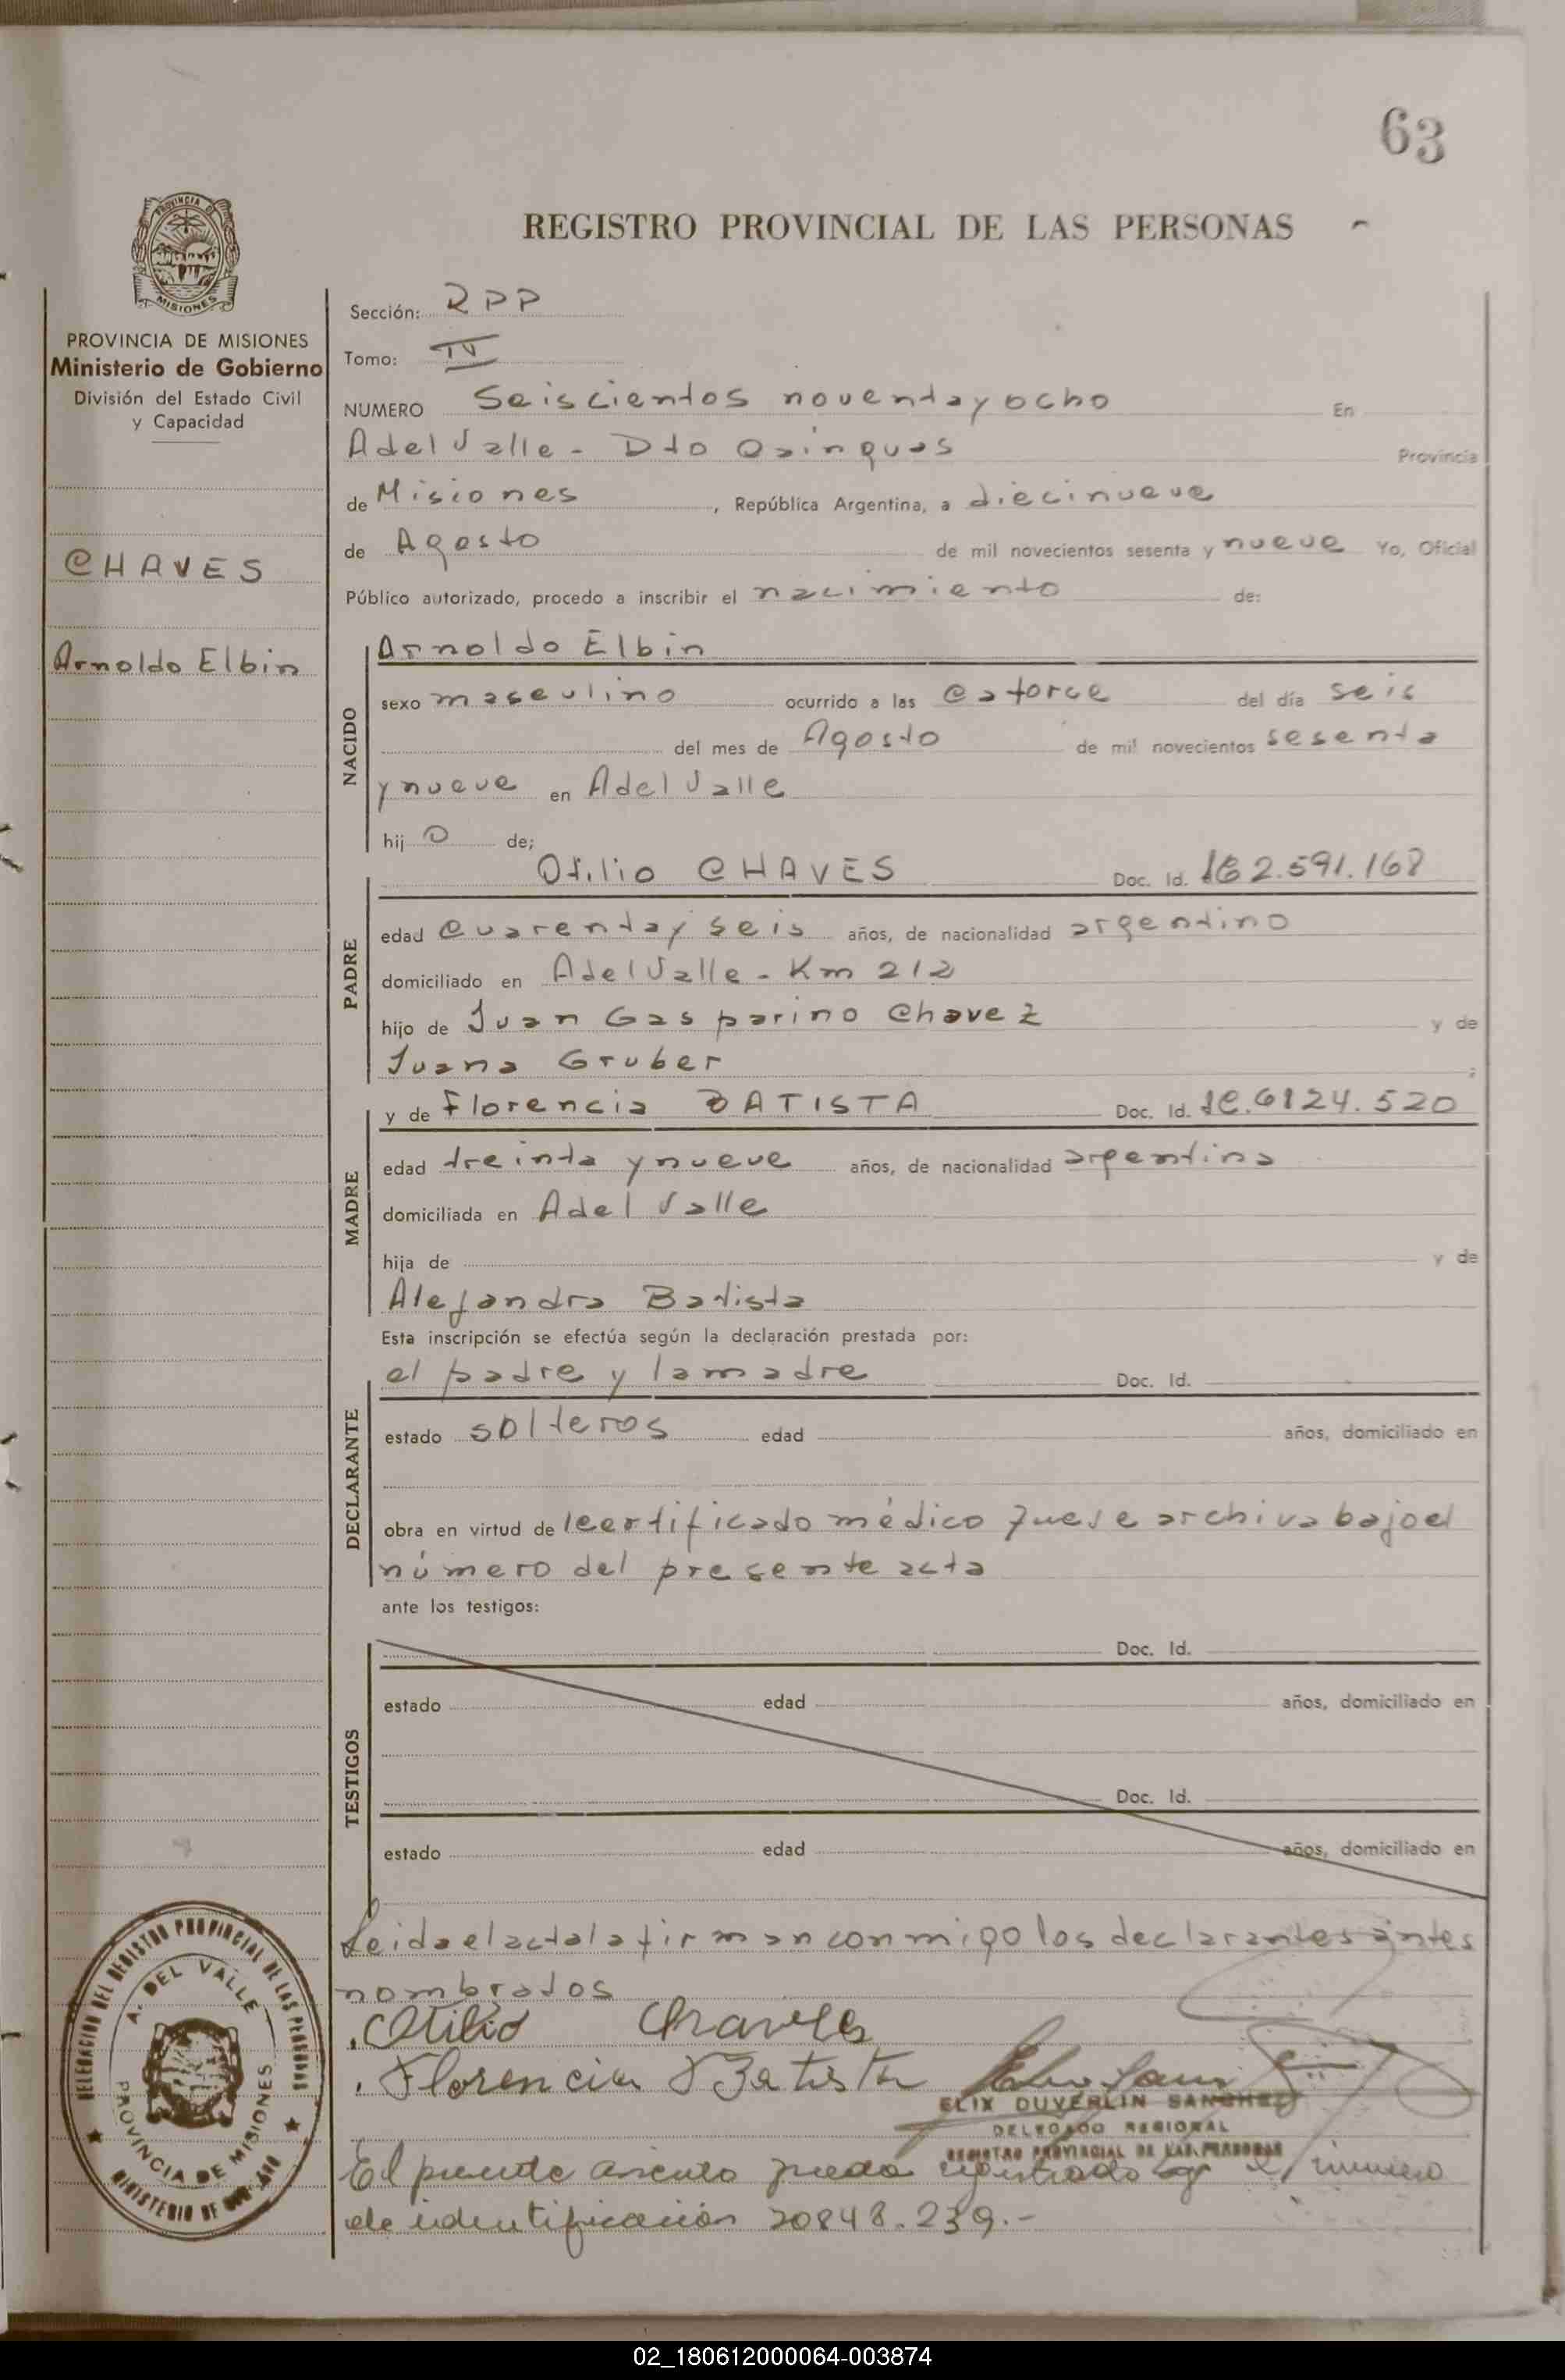 63
REGISTRO PROVINCIAL DE LAS PERSONAS
PROVINCIA DE MISIONES
PROVINCIA DE MISIONES
Ministerio de Gobierno
División del Estado Civil
y Capacidad
CHAVES
Arnoldo Elbin
Sección: RPP
Tomo: IV
NUMERO Seiscientos noventa y ocho En
A del Valle - Dto Cainguas Provincia
de Misiones, República Argentina, a diecinueve
de Agosto de mil novecientos sesenta y nueve Yo, Oficial
Público autorizado, procedo a inscribir el nacimiento de:
NACIDO
Arnoldo Elbin
sexo masculino ocurrido a las catorce del día seis
del mes de Agosto de mil novecientos sesenta
y nueve en A del Valle
hijo de;
PADRE
Otilio CHAVES Doc. Id. 2.591.168
edad cuarenta y seis años, de nacionalidad argentino
domiciliado en A del Valle - Km 212
hijo de Juan Gasparino Chavez y de
Juana Gruber ;
MADRE
y de Florencia BATISTA Doc. Id. 6124.520
edad treinta y nueve años, de nacionalidad argentina
domiciliada en A del Valle
hija de y de
Alejandra Batista
Esta inscripción se efectúa según la declaración prestada por:
DECLARANTE
el padre y la madre Doc. Id.
estado solteros edad años, domiciliado en
obra en virtud de certificado médico que se archiva bajo el
número del presente acta
ante los testigos:
TESTIGOS
Doc. Id.
estado edad años, domiciliado en
Doc. Id.
estado edad años, domiciliado en
Leida el acta la firman conmigo los declarantes antes
nombrados
Otilio Chaves
Florencia Batista
ELIX DUVERLIN SANCHEZ
DELEGADO REGIONAL
REGISTRO PROVINCIAL DE LAS PERSONAS
El presente asiento queda registrado el número
de identificación 20848.239.-
DELEGACION DEL REGISTRO PROVINCIAL DE LAS PERSONAS
A. DEL VALLE
PROVINCIA DE MISIONES
MINISTERIO DE
02_180612000064-003874